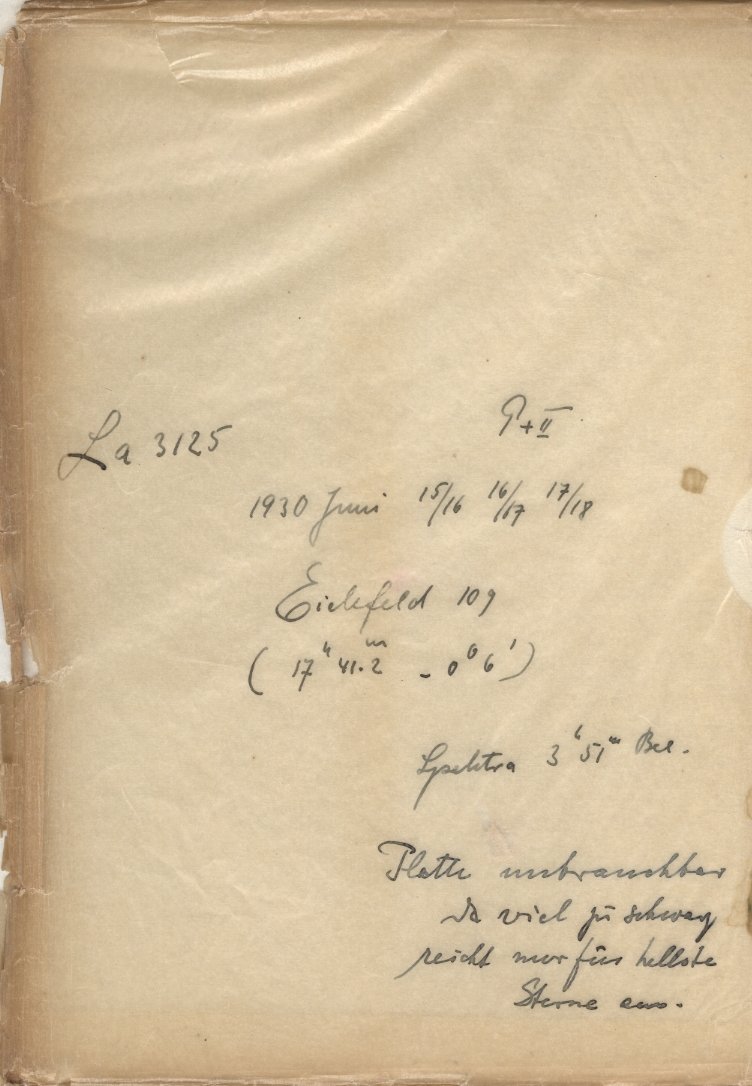 La 3125 P+II
1930 Juni 15/16 16/17 17/18
Eichfeld 109
( 17ʰ 41.2ᵐ - 0° 6' )
Spektra 3ʰ 51ᵐ Bel.
Platte unbrauchbar
da viel zu schwarz
reicht nur für hellste
Sterne aus.